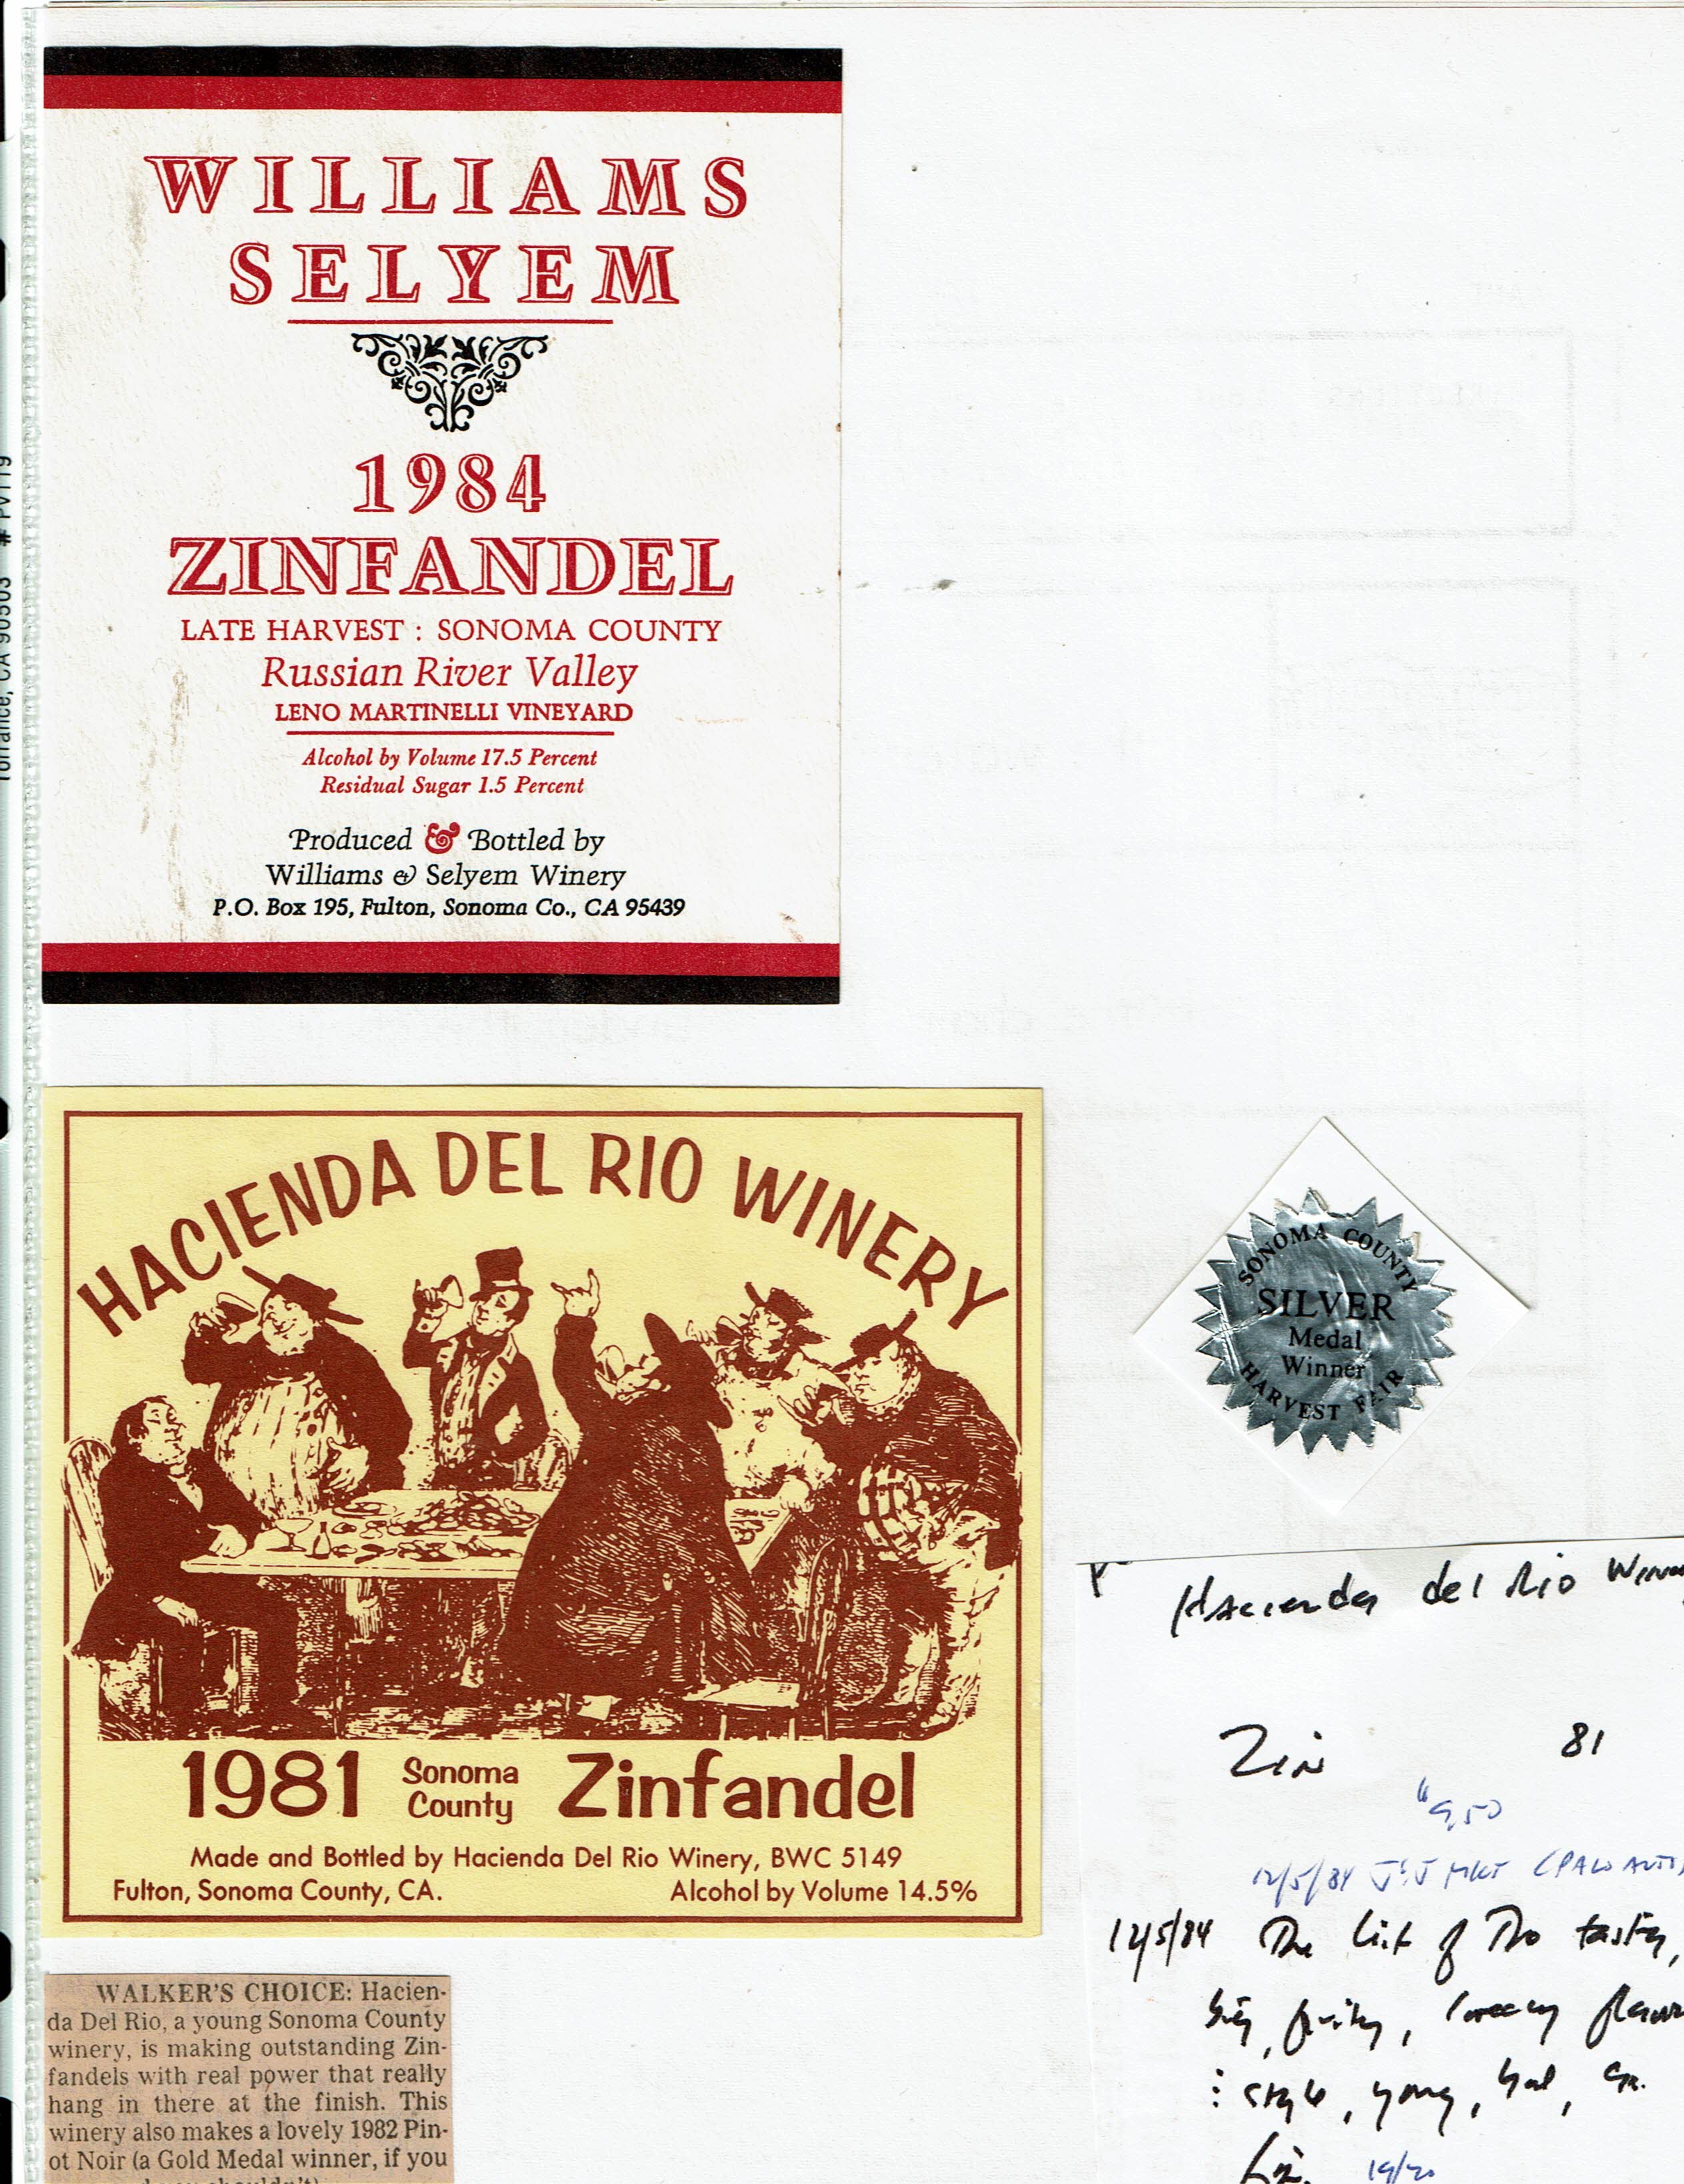 WILLIAMS
SELYEM
1984
ZINFANDEL
LATE HARVEST : SONOMA COUNTY
Russian River Valley
LENO MARTINELLI VINEYARD
Alcohol by Volume 17.5 Percent
Residual Sugar 1.5 Percent
Produced & Bottled by
Williams & Selyem Winery
P.O. Box 195, Fulton, Sonoma Co., CA 95439
Torrance, CA 90503 # PV119
HACIENDA DEL RIO WINERY
1981 Sonoma County Zinfandel
Made and Bottled by Hacienda Del Rio Winery, BWC 5149
Fulton, Sonoma County, CA. Alcohol by Volume 14.5%
SONOMA COUNTY
SILVER
Medal
Winner
HARVEST FAIR
Hacienda del Rio
Zin 81
9,50
12/5/84 J&J MKT (PALO ALTO)
12/5/84 The of
big, fruity,
: style, young,
19/20
WALKER'S CHOICE: Hacien-
da Del Rio, a young Sonoma County
winery, is making outstanding Zin-
fandels with real power that really
hang in there at the finish. This
winery also makes a lovely 1982 Pin-
ot Noir (a Gold Medal winner, if you